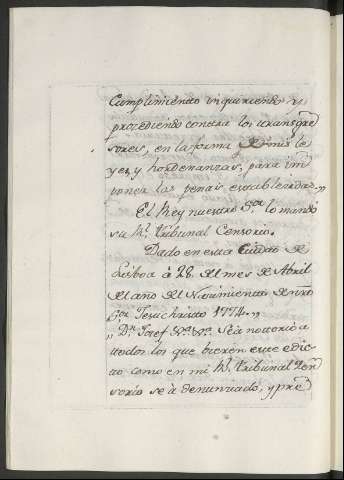 Cumplimiento inquiriendo y
prozediendo contra los transgre
sores, en la forma de mis le
yes, y hordenanzas, para im
poner las penas establecidas,,
El Rey nuestro S.or lo mandó
su R.l tribunal Censorio.
Dado en esta Ciudad de
Lisboa à 28. del mes de Abril
del año del Nacimiento de nro
S.or Jesuchristo 1774.,,
,, D.n Josef &.a &.a Sea notorio a
todos los que vieren este edic
to como en mi R.l tribunal Zen
sorio se à denunziado, y pre